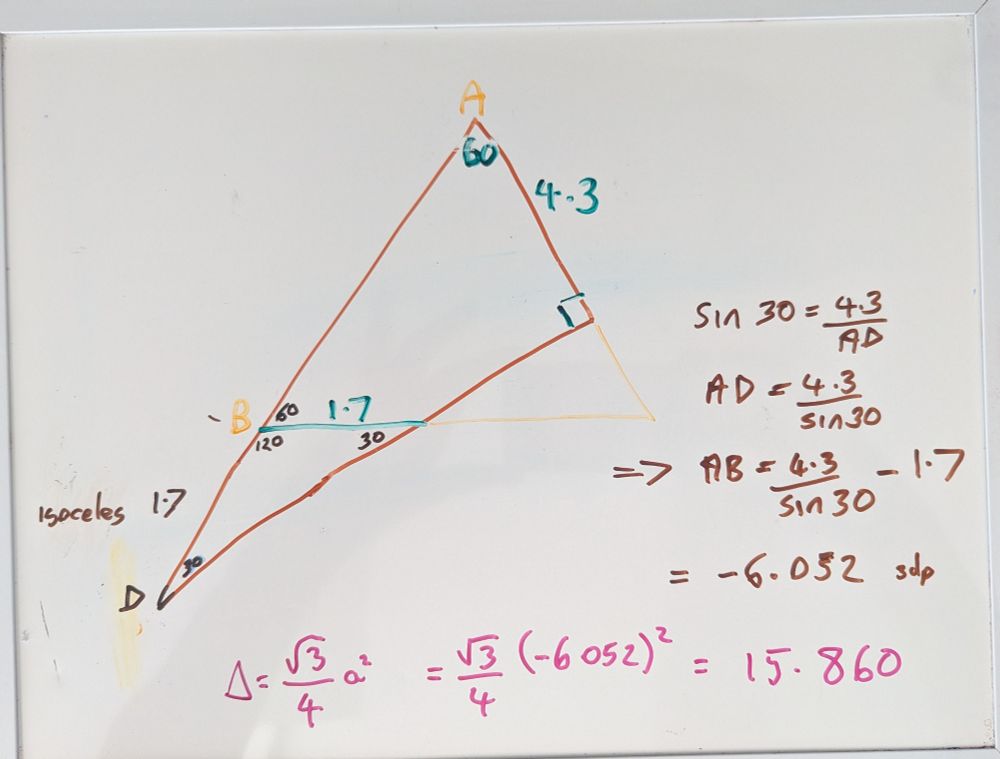 A
60
4.3
B
60
1.7
120
30
Isoceles 1.7
30
D
Sin 30 = 4.3/AD
AD = 4.3/sin30
=> AB = 4.3/sin30 - 1.7
= -6.052 3dp
Δ = √3/4 a² = √3/4 (-6 052)² = 15.860